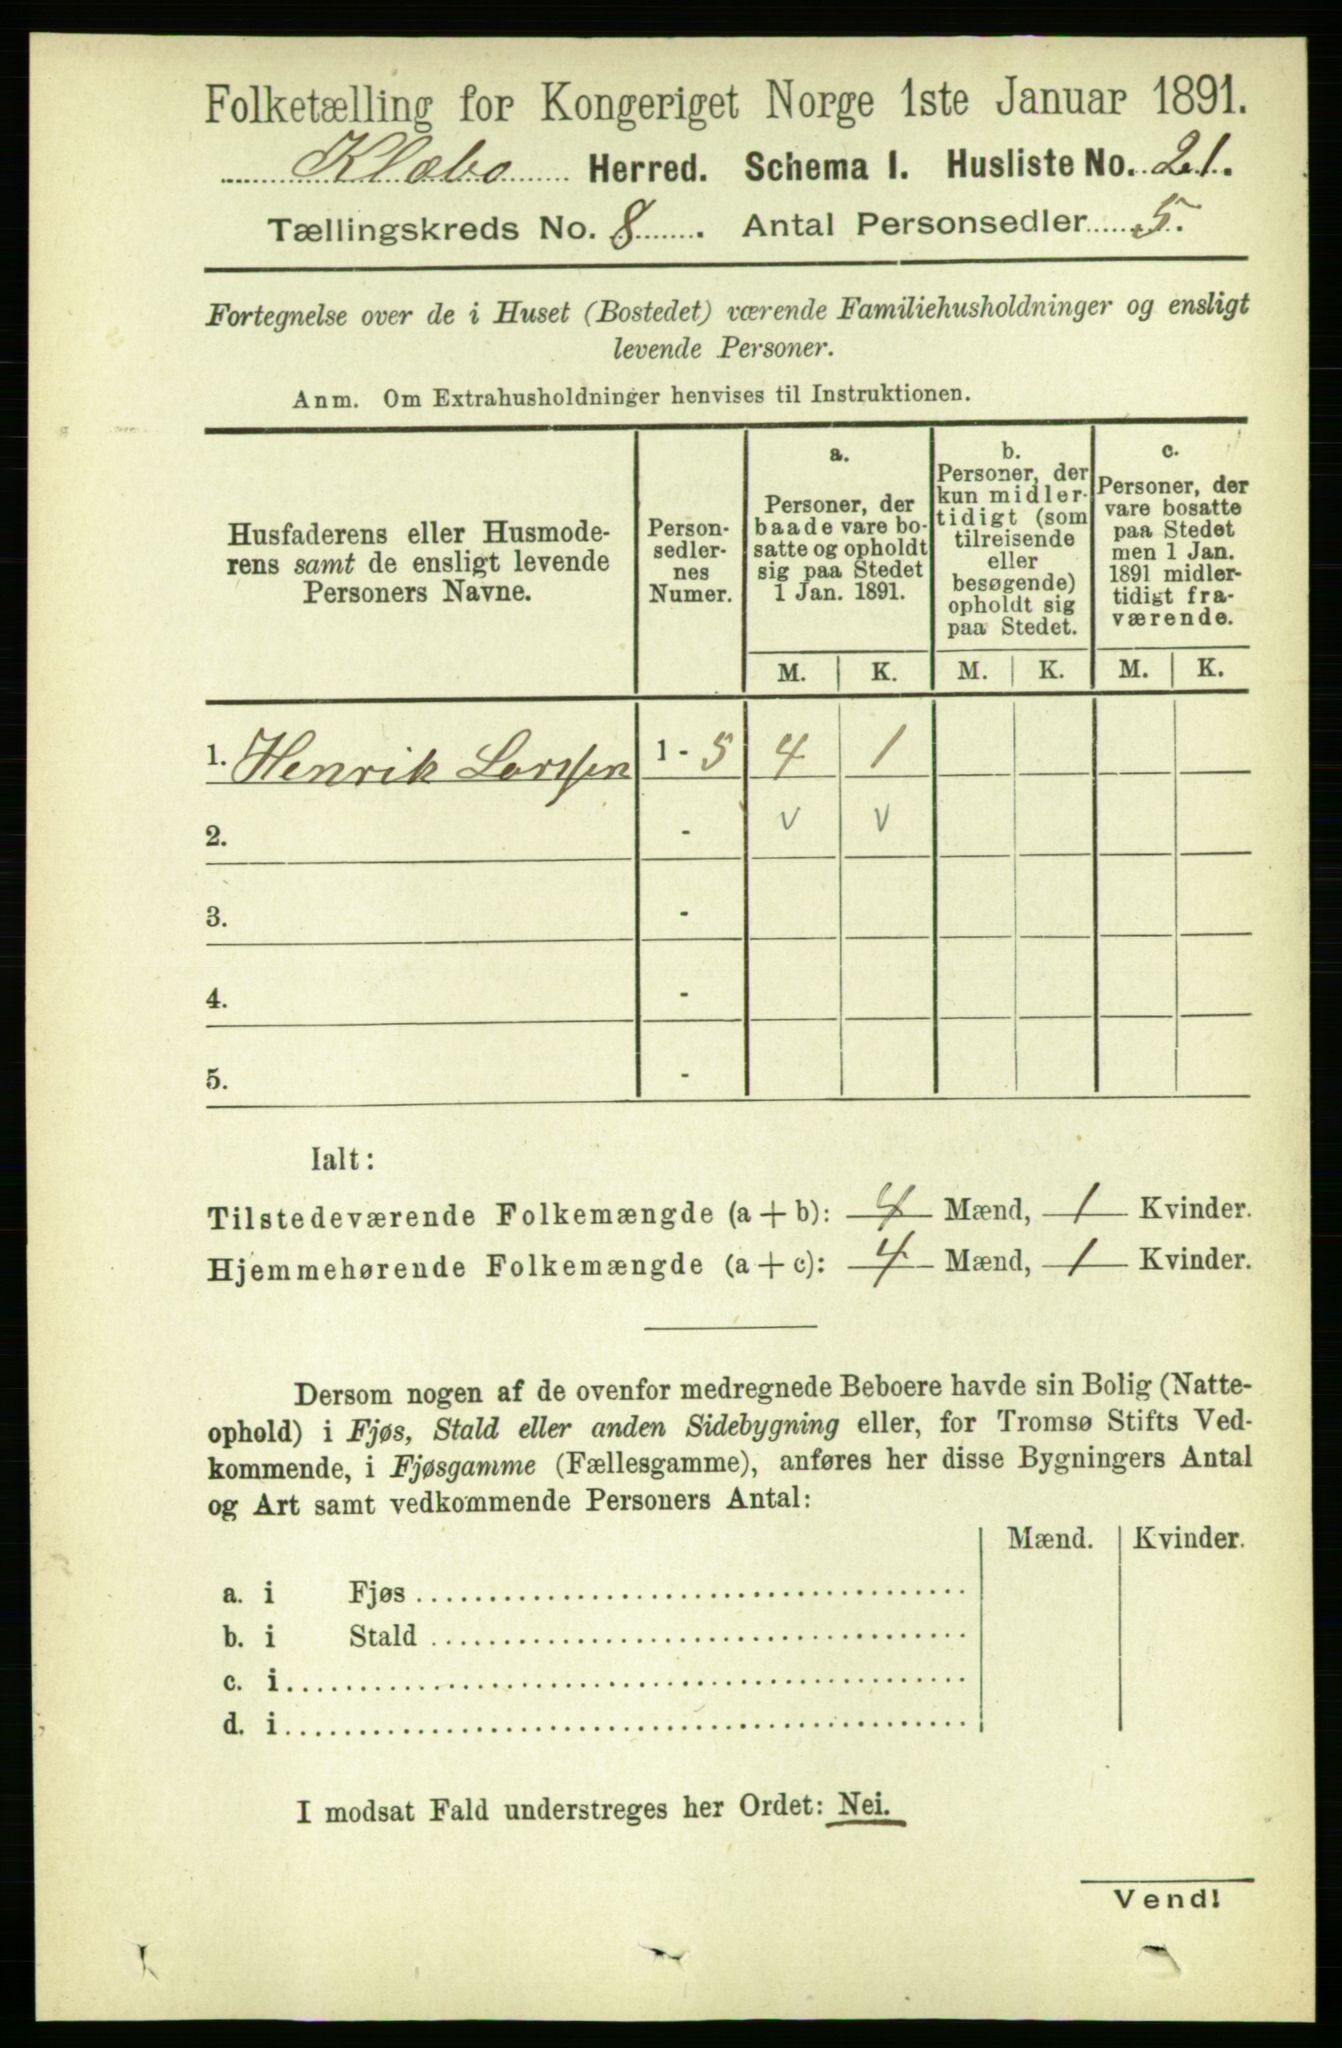 Folketælling for Kongeriget Norge 1ste Januar 1891.
Klæbo Herred. Schema I. Husliste No. 21.
Tællingskreds No. 8. Antal Personsedler 5.
Fortegnelse over de i Huset (Bostedet) værende Familiehusholdninger og ensligt
levende Personer.
Anm. Om Extrahusholdninger henvises til Instruktionen.
Husfaderens eller Husmode-
rens samt de ensligt levende
Personers Navne.
Person-
sedler-
nes
Numer.
a.
Personer, der
baade vare bo-
satte og opholdt
sig paa Stedet
1 Jan. 1891.
b.
Personer, der
kun midler-
tidigt (som
tilreisende
eller
besøgende)
opholdt sig
paa Stedet.
c.
Personer, der
vare bosatte
paa Stedet
men 1 Jan.
1891 midler-
tidigt fra-
værende.
M. K. M. K. M. K.
1. Henrik Larssen 1 - 5 4 1
2. - v v
3. -
4. -
5. -
Ialt:
Tilstedeværende Folkemængde (a + b): 4 Mænd, 1 Kvinder.
Hjemmehørende Folkemængde (a + c): 4 Mænd, 1 Kvinder.
Dersom nogen af de ovenfor medregnede Beboere havde sin Bolig (Natte-
ophold) i Fjøs, Stald eller anden Sidebygning eller, for Tromsø Stifts Ved-
kommende, i Fjøsgamme (Fællesgamme), anføres her disse Bygningers Antal
og Art samt vedkommende Personers Antal:
Mænd. Kvinder.
a. i Fjøs
b. i Stald
c. i
d. i
I modsat Fald understreges her Ordet: Nei.
Vend!